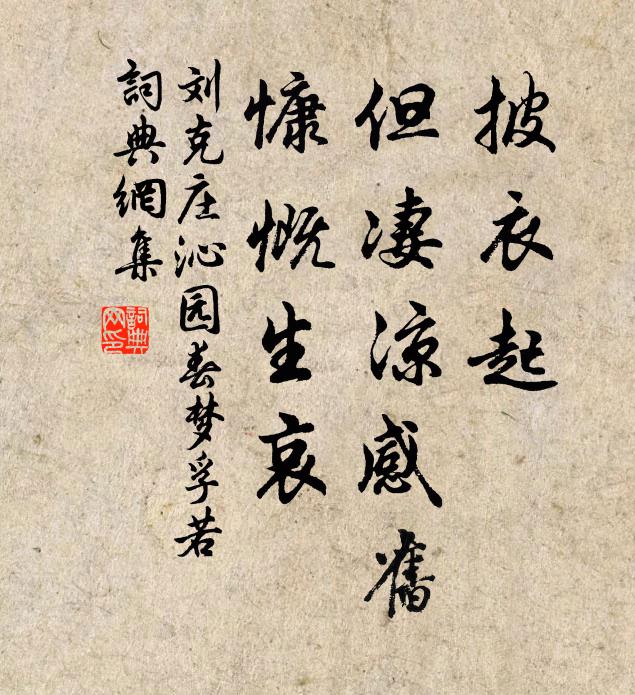 披衣起
但凄凉感舊
慷慨生哀
刘克庄沁园春梦孚若
詞典網集
詞典網印